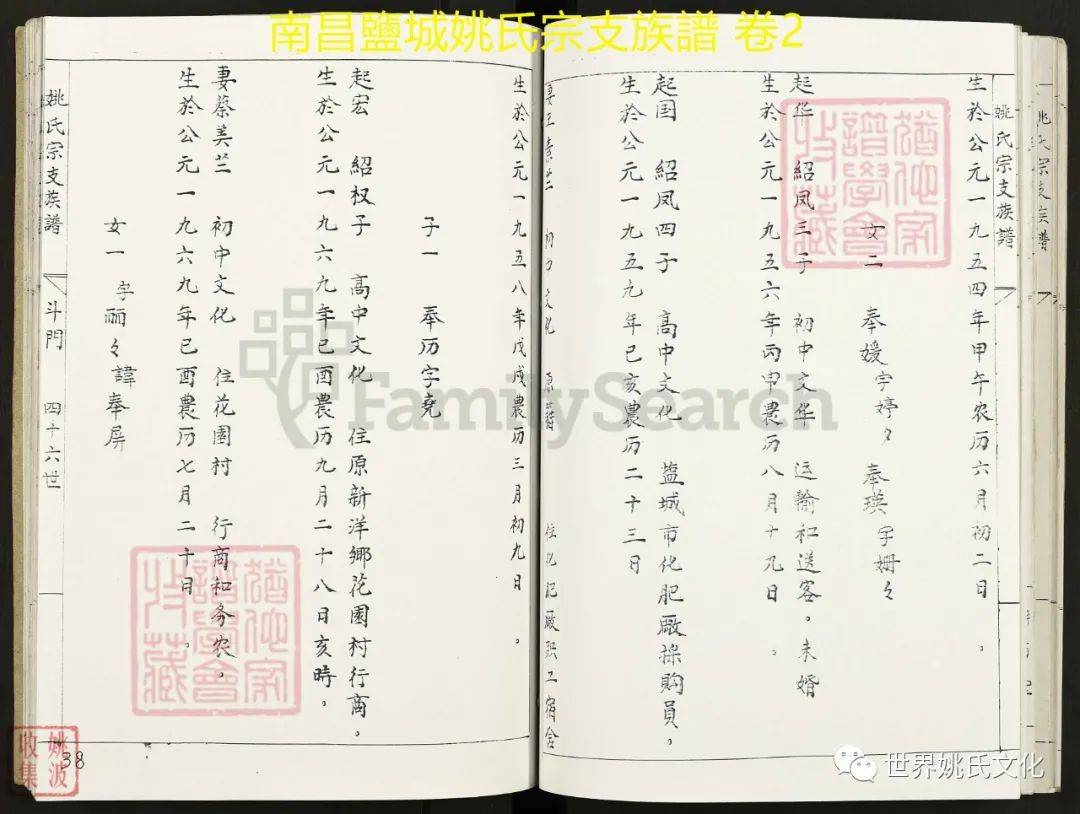 南昌鹽城姚氏宗支族譜 卷2
姚氏宗支族譜
姚氏宗支族譜
生於公元一九五四年甲午农历六月初二日。
女二 奉媛字婷々 奉瑛字姗々
起华 紹凤三子 初中文华 运輸和送客。未婚
生於公元一九五六年丙申農历八月十九日。
起国 紹凤四子 高中文化 盐城市化肥厰採购員。
生於公元一九五九年已亥農历二十三日
妻王素兰 初中文化 原籍 住化肥厰职工宿舍
生於公元一九五八年戊戌農历三月初九日。
子一 奉历字尧
起宏 紹权子 高中文化 住原新洋鄉花園村行商。
生於公元一九六九年已酉農历九月二十八日亥時。
妻蔡美兰 初中文化 住花園村 行商和务农。
生於公元一九六九年已酉農历七月二十日。
女一 字丽々諱奉屏
姚氏宗支族譜 斗門 四十六世
38
猶他家譜學會收藏
猶他家譜學會收藏
姚波收集
FamilySearch
世界姚氏文化